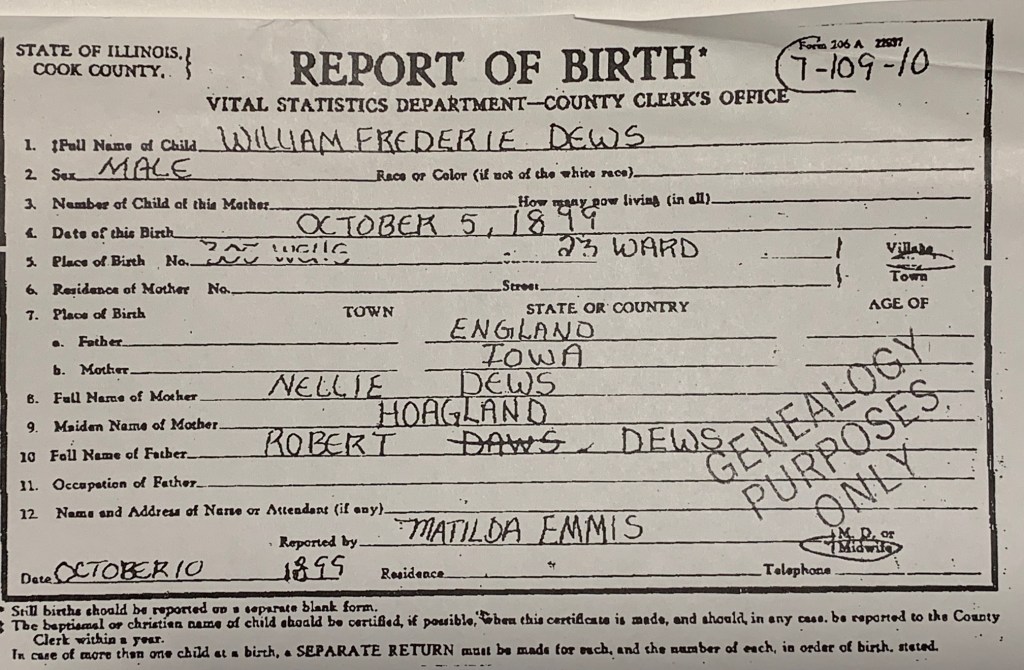 STATE OF ILLINOIS, }
COOK COUNTY, }
Form 206 A 22937
7-109-10
REPORT OF BIRTH*
VITAL STATISTICS DEPARTMENT—COUNTY CLERK'S OFFICE
1. ‡Full Name of Child WILLIAM FREDERIE DEWS
2. Sex MALE Race or Color (if not of the white race)
3. Number of Child of this Mother How many now living (in all)
4. Date of this Birth OCTOBER 5, 1899
5. Place of Birth No. 23 WARD Village
Town
6. Residence of Mother No. Street
7. Place of Birth TOWN STATE OR COUNTRY AGE OF
a. Father ENGLAND
b. Mother IOWA
8. Full Name of Mother NELLIE DEWS
9. Maiden Name of Mother HOAGLAND
10 Full Name of Father ROBERT DAWS DEWS
11. Occupation of Father
12. Name and Address of Nurse or Attendant (if any)
GENEALOGY
PURPOSES
ONLY
Reported by MATILDA EMMIS M. D. or
Midwife
Date OCTOBER 10 1899 Residence Telephone
* Still births should be reported on a separate blank form.
‡ The baptismal or christian name of child should be certified, if possible, when this certificate is made, and should, in any case, be reported to the County
Clerk within a year.
In case of more than one child at a birth, a SEPARATE RETURN must be made for each, and the number of each, in order of birth, stated.